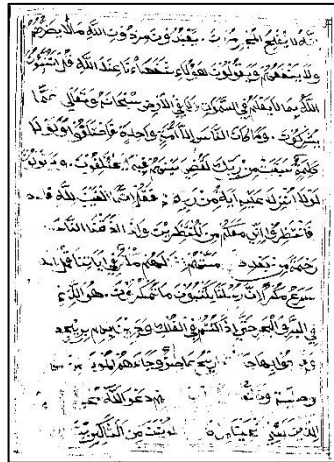 انه لا يفلح المجرمون ويعبدون من دون الله ما لا يضرهم
ولا ينفعهم ويقولون هؤلاء شفعاؤنا عند الله قل اتنبئون
الله بما لا يعلم في السموات ولا في الارض سبحانه وتعالى عما
يشركون وما كان الناس الا امة واحدة فاختلفوا ولولا
كلمة سبقت من ربك لقضي بينهم فيه يختلفون ويقولون
لولا انزل عليه اية من ربه فقل انما الغيب لله
فانتظروا اني معكم من المنتظرين واذا اذقنا الناس
رحمة من بعد مستهم لهم مكر في اياتنا قل الله
اسرع مكرا ان رسلنا يكتبون ما تمكرون هو الذي
في البر والبحر حتى اذا كنتم في الفلك وجرين بهم بريح
ريح عاصف وجاءهم الموج من
دعوا الله
من الشاكرين